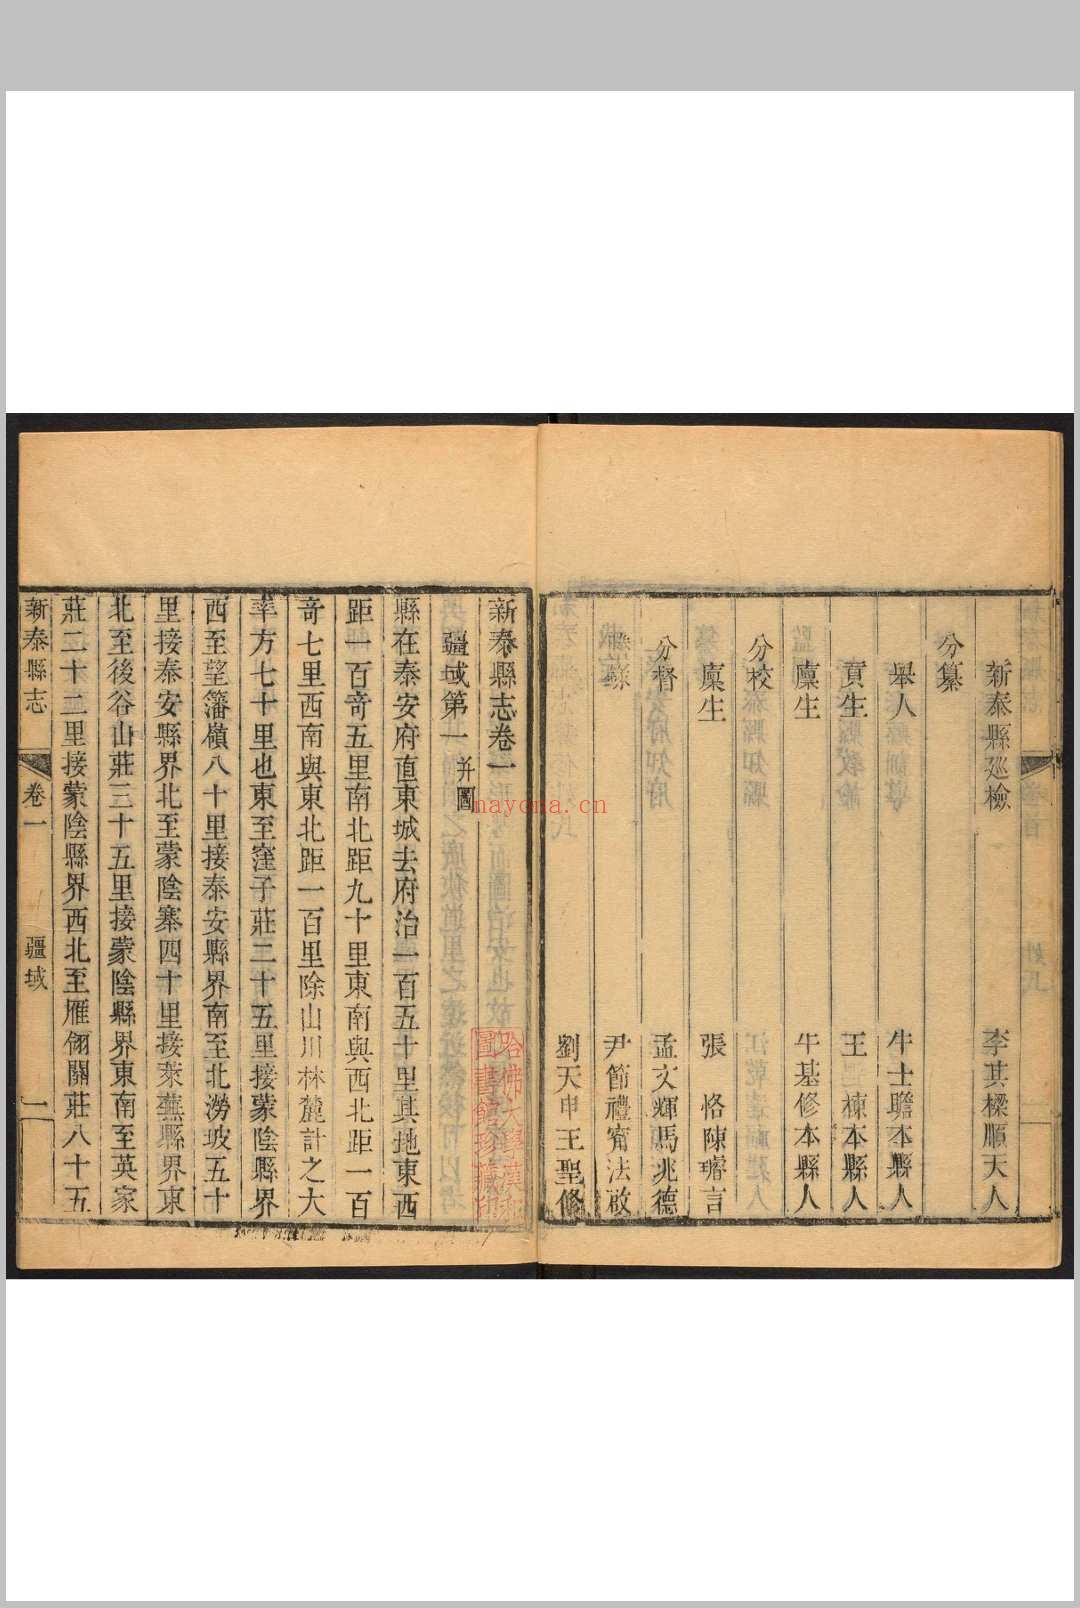 新泰縣廵檢　李其樑順天人
分纂
舉人　牛士瞻本縣人
貢生　王棟本縣人
廩生　牛基修本縣人
分校
廩生　張恪陳璿言
分督　孟文輝馬兆德
尹節禮甯法啟
劉天申王聖修
新泰縣志卷一
疆域第一　并圖
縣在泰安府直東城去府治一百五十里其地東西
距一百竒五里南北距九十里東南與西北距一百
竒七里西南與東北距一百里除山川林麓計之大
率方七十里也東至窪子莊二十五里接蒙陰縣界
西至望籓嶺八十里接泰安縣界南至北澇坡五十
里接泰安縣界北至蒙陰寨四十里接萊蕪縣界東
北至後谷山莊三十五里接蒙陰縣界東南至英家
莊二十二里接蒙陰縣界西北至雁翎關莊八十五
新泰縣志　卷一　疆域　一
哈佛大學漢和圖書館珍藏印
nayona.cn